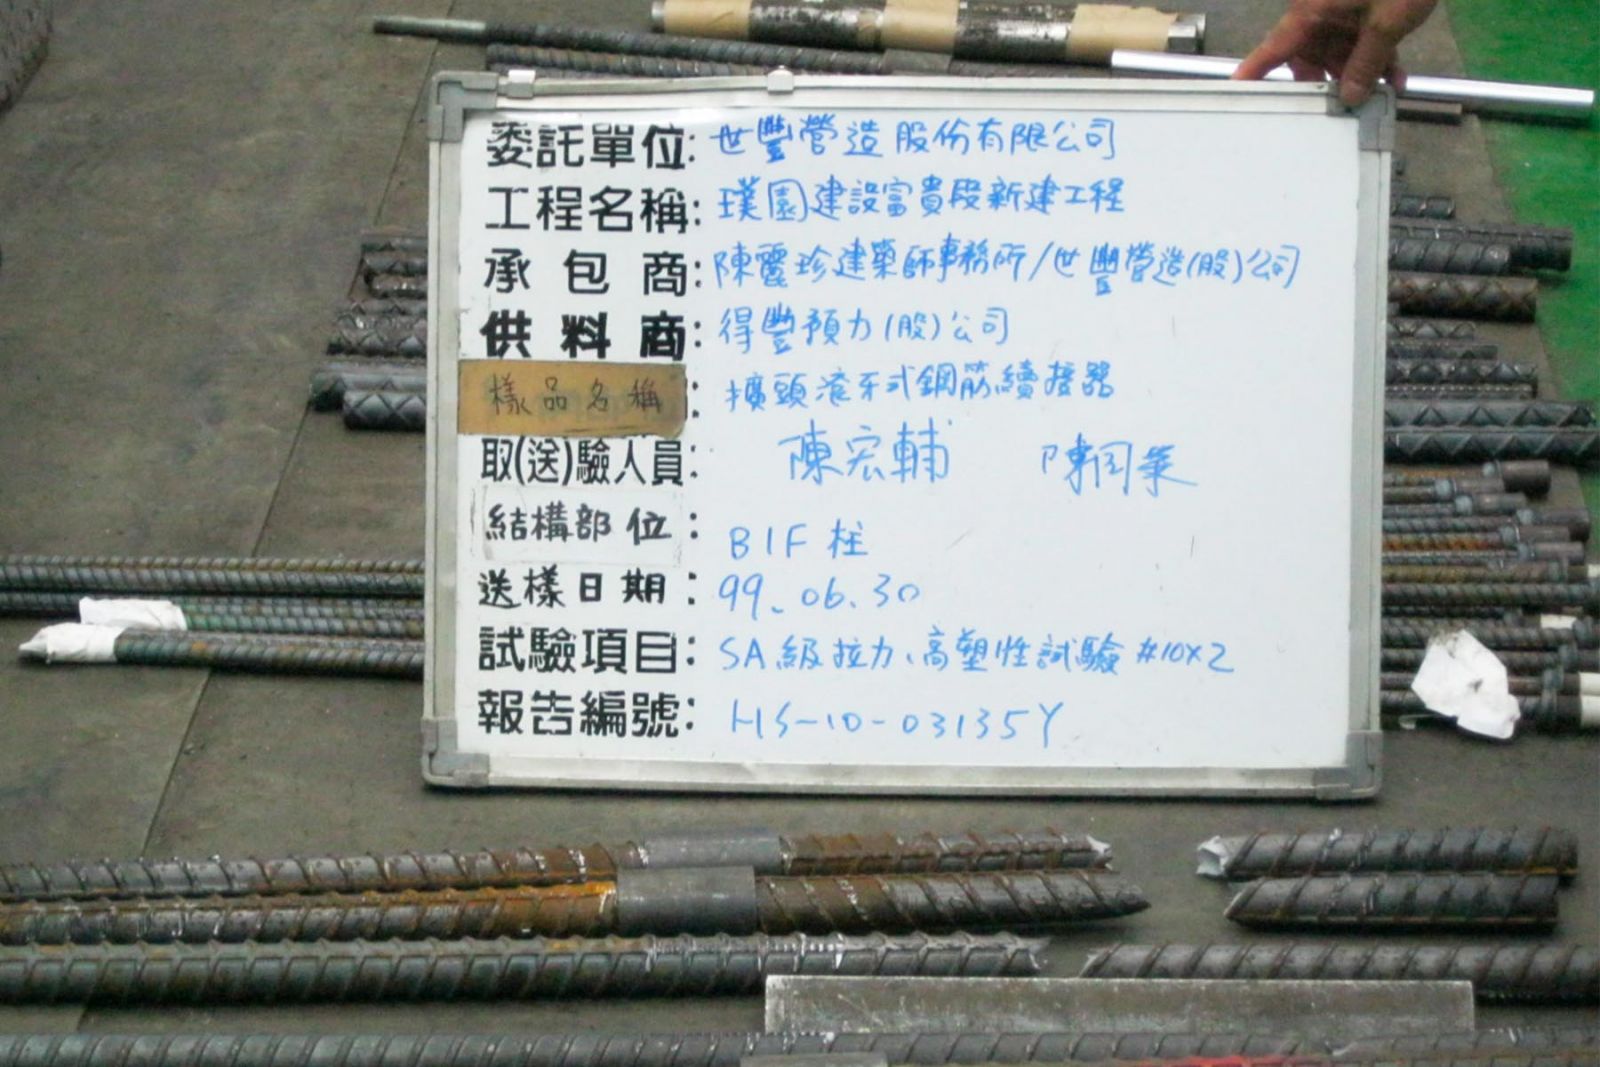 委託單位: 世豐營造股份有限公司
工程名稱: 璞園建設富貴段新建工程
承包商: 陳麗珍建築師事務所/世豐營造(股)公司
供料商: 得豐預力(股)公司
樣品名稱: 擴頭滾牙式鋼筋續接器
取(送)驗人員: 陳宏輔 陳
結構部位: B1F柱
送樣日期: 99.06.30
試驗項目: SA級拉力、高塑性試驗 #10x2
報告編號: HS-10-03135Y